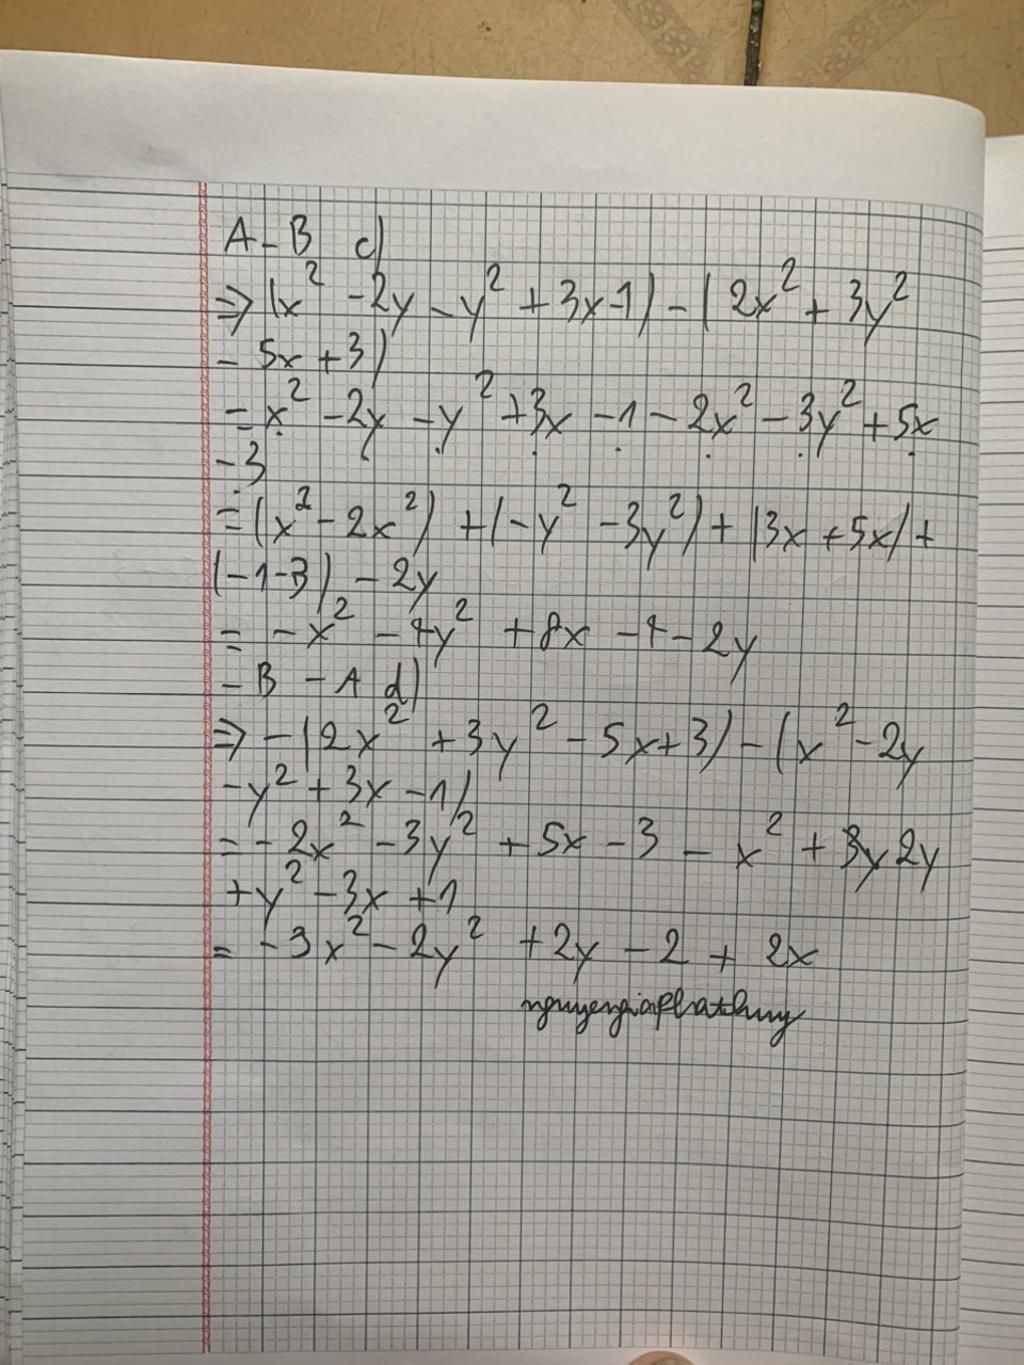 A - B c)
⇒ (x² - 2y - y² + 3x - 1) - (2x² + 3y²
- 5x + 3)
= x² - 2y - y² + 3x - 1 - 2x² - 3y² + 5x
- 3
= (x² - 2x²) + (- y² - 3y²) + (3x + 5x) +
(-1 - 3) - 2y
= - x² - 4y² + 8x - 4 - 2y
- B - A d)
⇒ - (2x² + 3y² - 5x + 3) - (x² - 2y
- y² + 3x - 1)
= - 2x² - 3y² + 5x - 3 - x² + 3y 2y
+ y² - 3x + 1
= - 3x² - 2y² + 2y - 2 + 2x
nguyengiaphathuy